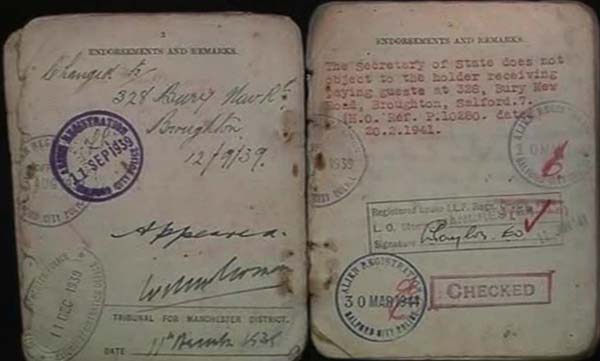 3
ENDORSEMENTS AND REMARKS.
Changed to
328 Bury New Rd.
Broughton
12/9/39.
ALIEN REGISTRATION
11 SEP 1939
SALFORD CITY POLICE
Appeared.
11 DEC 1939
TRIBUNAL FOR MANCHESTER DISTRICT.
DATE 11th
ENDORSEMENTS AND REMARKS.
The Secretary of State does not
object to the holder receiving
paying guests at 328, Bury New
Road, Broughton, Salford.7.
(H.O. Ref. P.10280. date
20.2.1941.
1939
Registered under I.L.F. Regs.
L. O.
Signature
ALIEN REGISTRATION
30 MAR 1944
SALFORD CITY POLICE
CHECKED